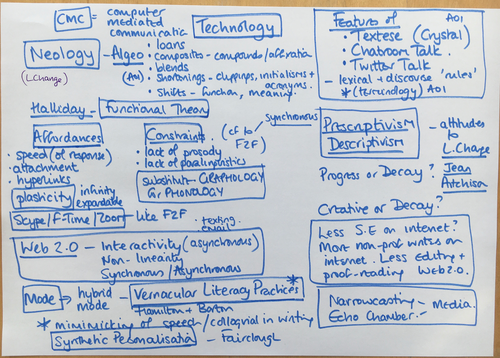 CMC = computer mediated communicatic
Technology
Neology - Algeo
(LChange)
(AO1)
• loans
• composites - compounds/affixation
• blends
• Shortenings - clippings, initialisms + acronyms.
• Shifts - function, meaning.
Features of AO1
• Textese (Crystal)
• Chatroom Talk.
• Twitter Talk
- lexical + discourse 'rules'
* (terminology) AO1
Halliday - Functional Theory
Affordances
• speed (of response)
• attachment
• hyperlinks
plasticity - infinitly expandable
Constraints (cf to F2F) synchronous
• lack of prosody
• lack of paralinguistics
substitute - GRAPHOLOGY
Gr PHONOLOGY
Skype/F-Time/Zoom - like F2F
• texting
email
Prescriptivism
Descriptivism
- attitudes to L.Change
Progress or Decay?
Jean Aitchison
Creative or Decay?
Less S.E on internet?
More non-prof writers on internet. Less Editing + proof-reading Web 2.0.
Web 2.0 - Interactivity (asynchronous)
Non-linearity
Synchronous/Asynchronous
Mode → hybrid mode - Vernacular Literacy Practices *
Hamilton + Barton
* mimimicting of speech/colloquial in writing
Synthetic Personalisatn - Fairclough
Narrowcasting - Media.
Echo Chamber -